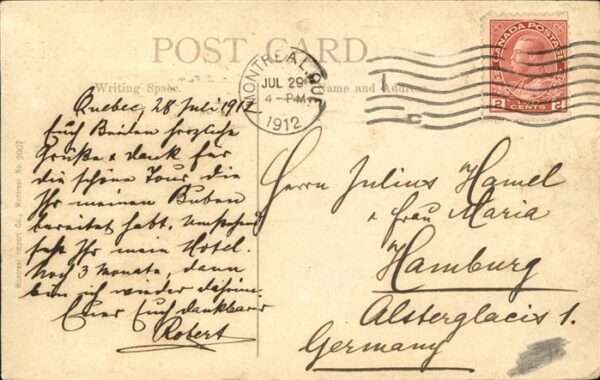 POST CARD
Writing Space.
Name and Address
MONTREAL, QUE.
JUL 29
4 - P.M.
1912
CANADA POSTAGE
2 CENTS 2
Montreal Import Co., Montreal No. 9007
Quebec, 28 Juli 1912
Euch Beiden herzliche
Grüße & dank für
die schöne Tour die
Ihr meinen Buben
bereitet habt. Umstehend
seht Ihr mein Hotel.
Noch 3 Monate, dann
bin ich wieder daheim.
Euer Euch dankbarer
Robert
Herrn Julius Hamel
& Frau Maria
Hamburg
Alsterglacis 1.
Germany